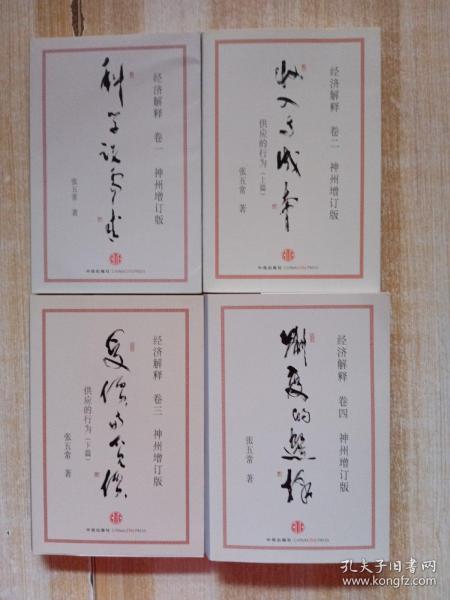 经济解释 卷一 神州增订版
科学说需求
张五常 著
中信出版社 CHINA CITIC PRESS
经济解释 卷二 神州增订版
收入与成本
供应的行为(上篇)
张五常 著
中信出版社 CHINA CITIC PRESS
经济解释 卷三 神州增订版
受价与觅价
供应的行为(下篇)
张五常 著
中信出版社 CHINA CITIC PRESS
经济解释 卷四 神州增订版
制度的选择
张五常 著
中信出版社 CHINA CITIC PRESS
孔夫子旧书网
www.kongfz.com